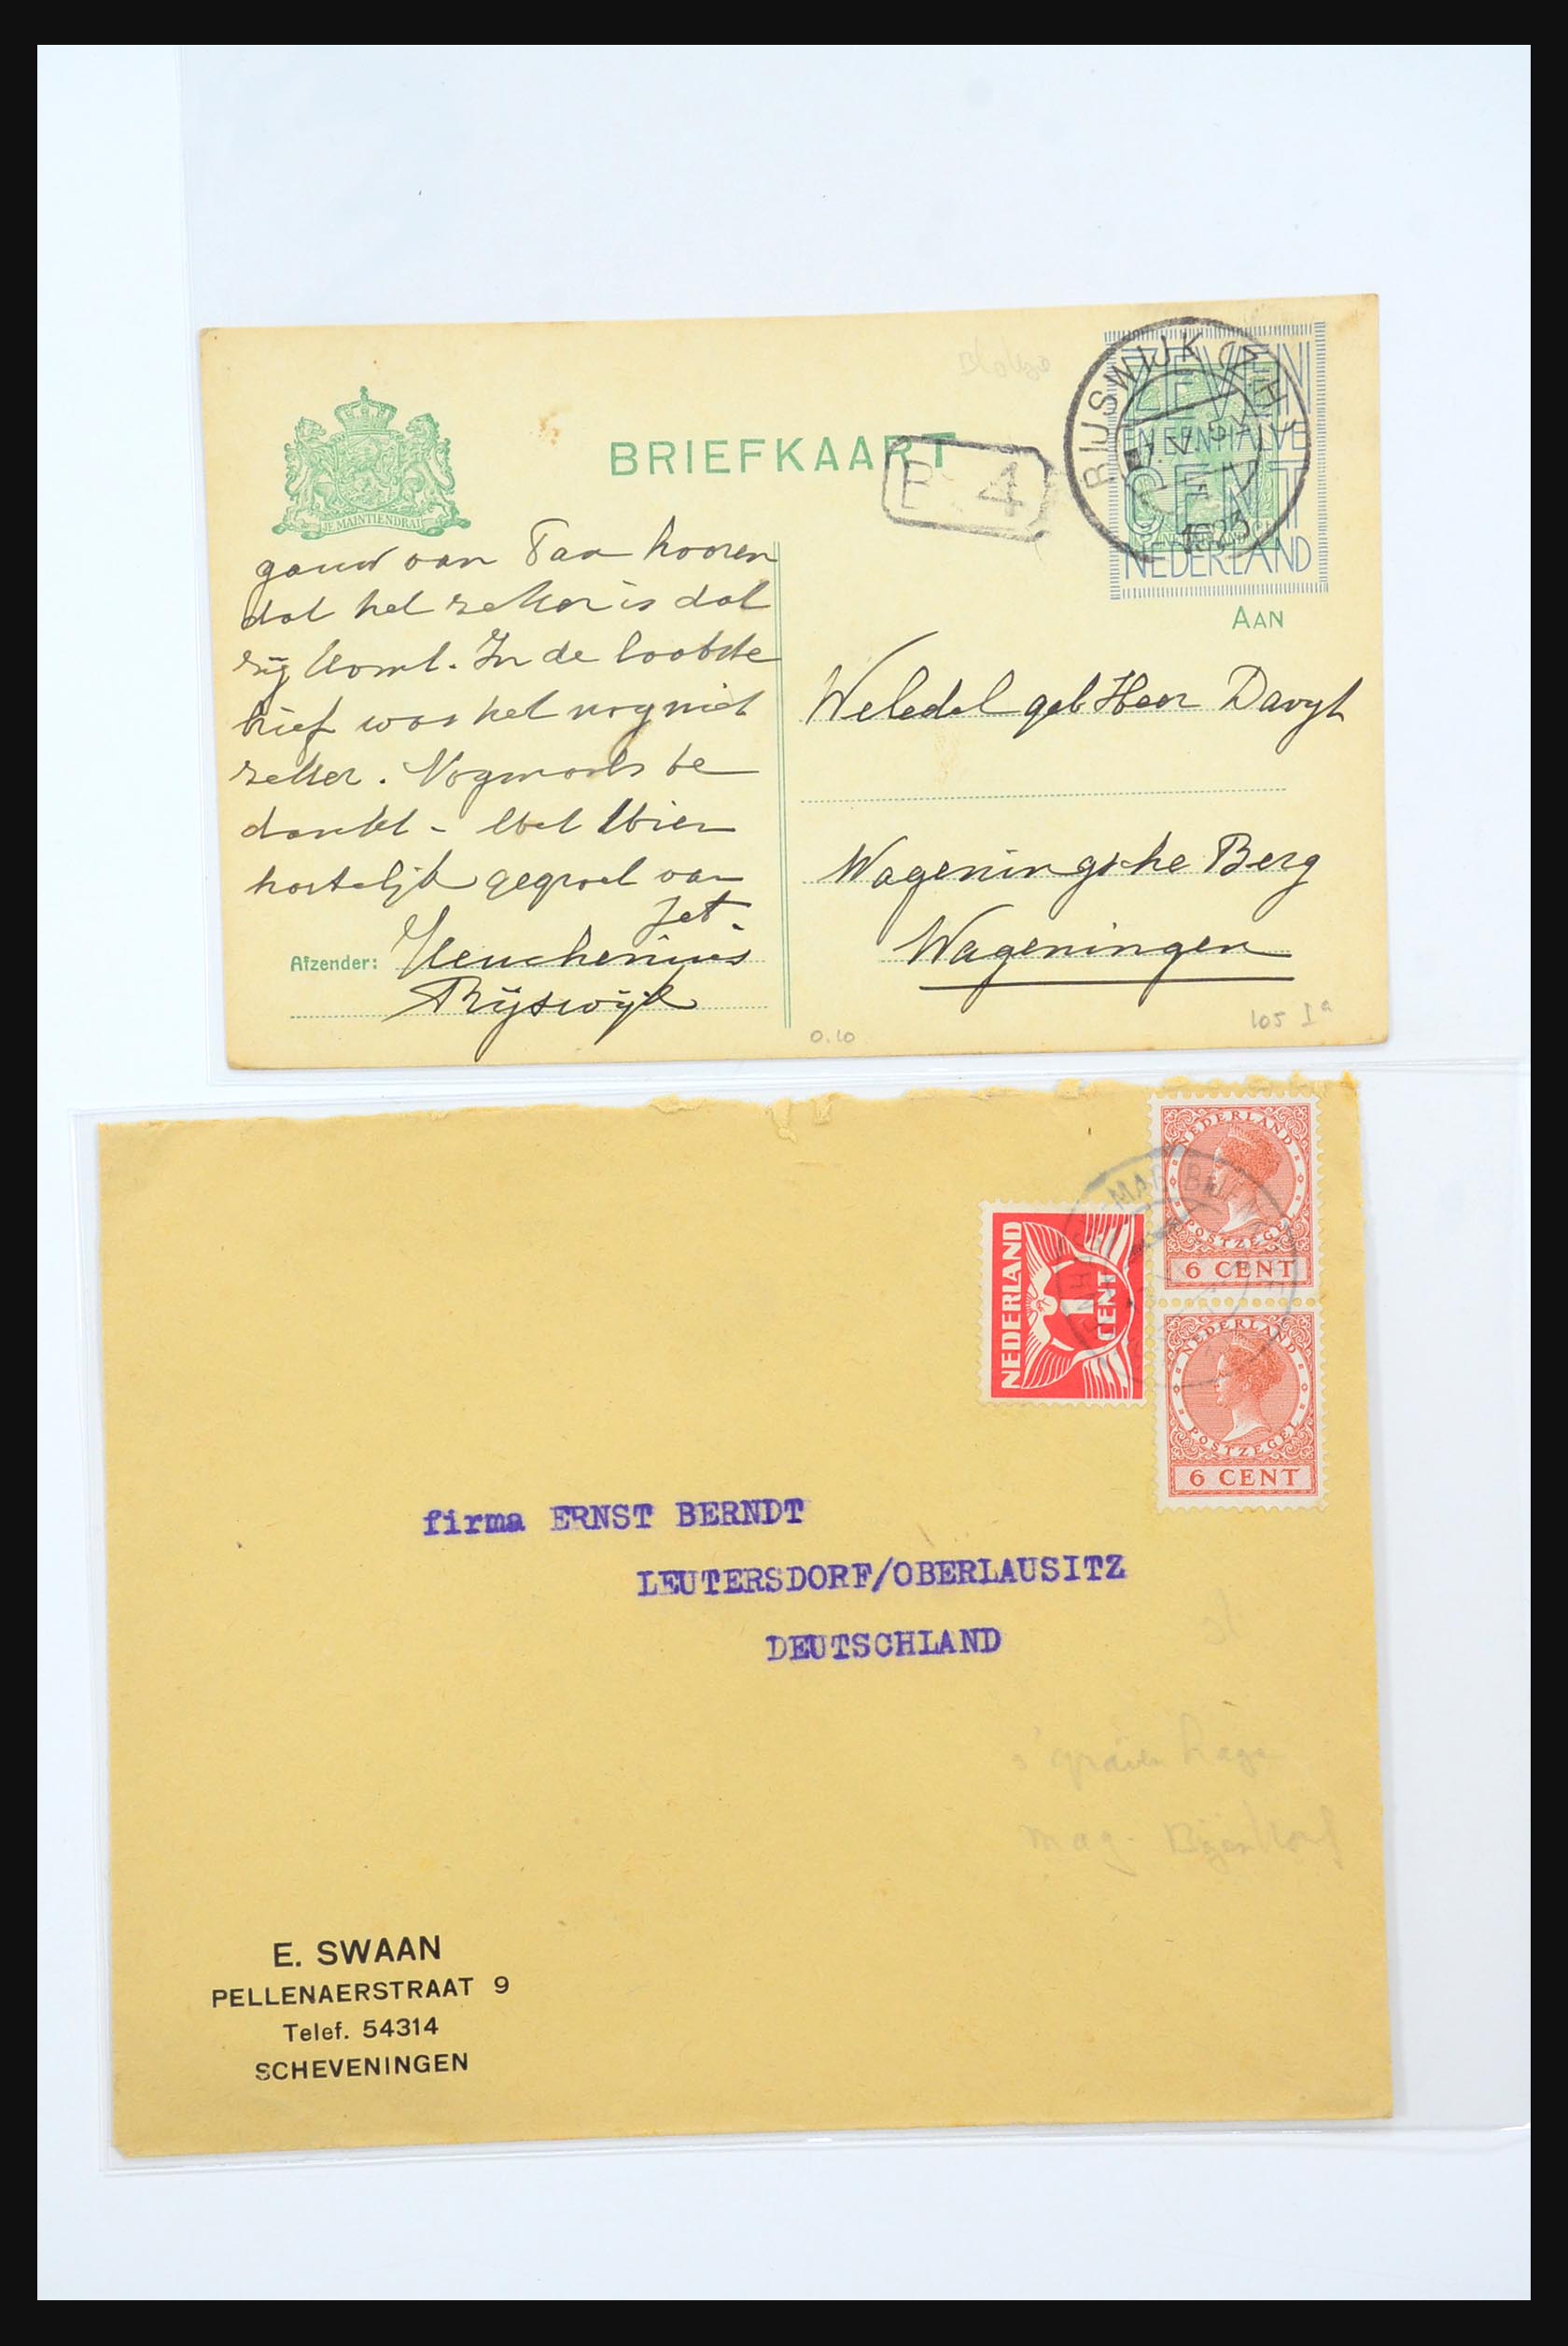 BRIEFKAART
JE MAINTIENDRAI
B 4
RIJSWIJK (Z.H.)
1925
ZEVEN
EN EEN HALVE
CENT
NEDERLAND
AAN
gauw van Taa hooren
dat het zeker is dat
zij komt. In de laatste
brief was het nog niet
zeker. Nogmaals be
dankt - Met
hartelijk gegroet van
Jet.
Afzender: Heuchenius
Rijswijk
Weledel geb Heer Davyt
Wageningsche Berg
Wageningen
0.10
105 Ia
NEDERLAND
POSTZEGEL
6 CENT
NEDERLAND
1 CENT
NEDERLAND
POSTZEGEL
6 CENT
firma ERNST BERNDT
LEUTERSDORF/OBERLAUSITZ
DEUTSCHLAND
s'graven hage
mag. Bijenkorf
E. SWAAN
PELLENAERSTRAAT 9
Telef. 54314
SCHEVENINGEN